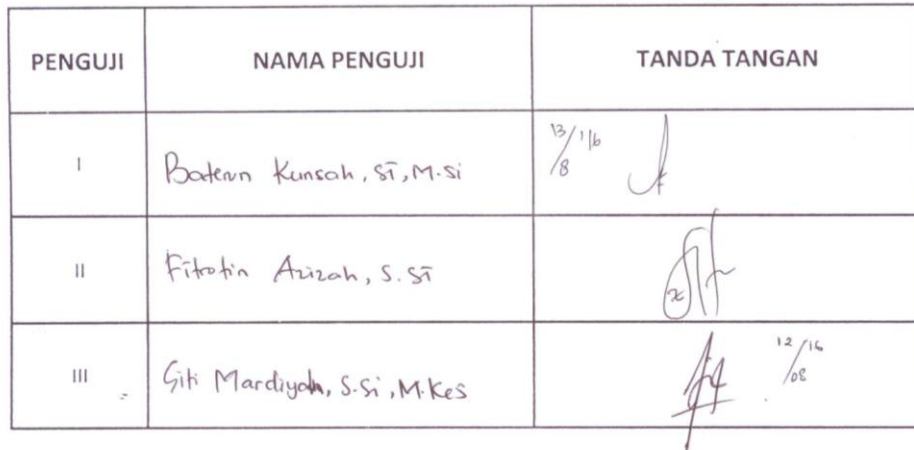 PENGUJI NAMA PENGUJI TANDA TANGAN
I Baterun Kunsah, ST, M.Si 13/8 16
II Fitrotin Azizah, S.ST
III Siti Mardiyah, S.Si, M.Kes 12/08 16